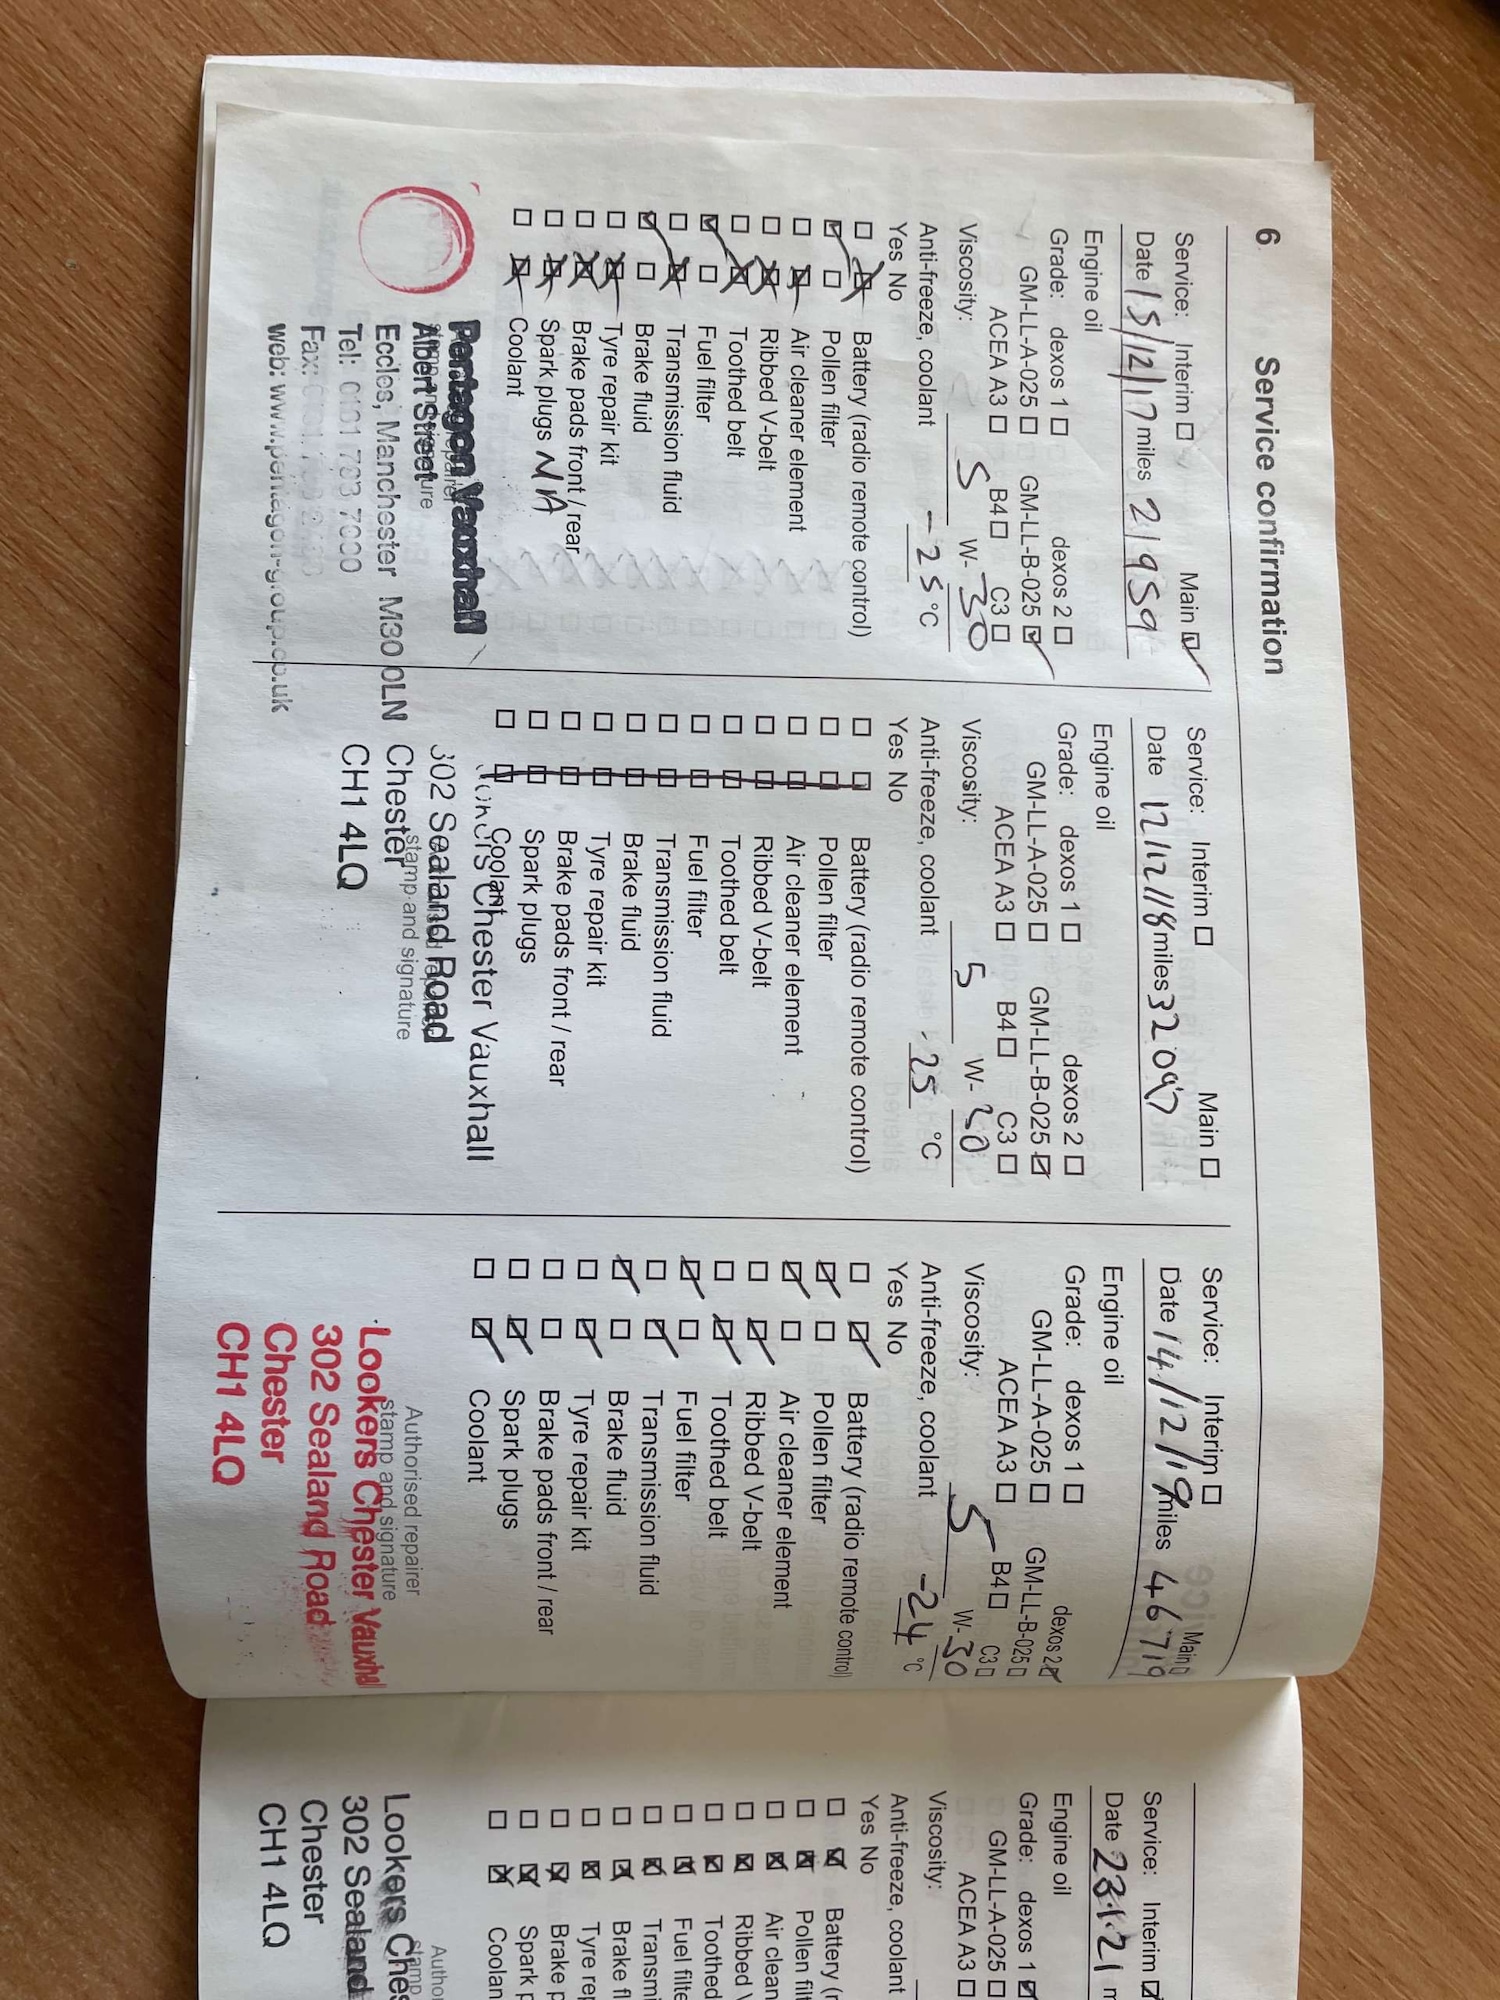 6 Service confirmation
Service: Interim ☐ Main ☑
Date 15/12/17 miles 21959
Engine oil
Grade: dexos 1 ☐ dexos 2 ☐
GM-LL-A-025 ☐ GM-LL-B-025 ☑
ACEA A3 ☐ B4 ☐ C3 ☐
Viscosity: 5 W- 30
Anti-freeze, coolant -25 °C
Yes No
☐ ☒ Battery (radio remote control)
☑ ☐ Pollen filter
☐ ☒ Air cleaner element
☐ ☒ Ribbed V-belt
☐ ☒ Toothed belt
☑ ☐ Fuel filter
☐ ☒ Transmission fluid
☑ ☐ Brake fluid
☐ ☒ Tyre repair kit
☐ ☒ Brake pads front / rear
☐ ☒ Spark plugs NA
☐ ☒ Coolant
Pentagon Vauxhall
Albert Street
Eccles, Manchester M30 0LN
Tel: 0161 783 7000
Fax:
web: www.pentagon-group.co.uk
Service: Interim ☐ Main ☐
Date 12/12/18 miles 32097
Engine oil
Grade: dexos 1 ☐ dexos 2 ☐
GM-LL-A-025 ☐ GM-LL-B-025 ☑
ACEA A3 ☐ B4 ☐ C3 ☐
Viscosity: 5 W- 30
Anti-freeze, coolant -25 °C
Yes No
☐ ☐ Battery (radio remote control)
☐ ☐ Pollen filter
☐ ☐ Air cleaner element
☐ ☐ Ribbed V-belt
☐ ☐ Toothed belt
☐ ☐ Fuel filter
☐ ☐ Transmission fluid
☐ ☐ Brake fluid
☐ ☐ Tyre repair kit
☐ ☐ Brake pads front / rear
☐ ☐ Spark plugs
☐ ☐ Coolant
Chester Vauxhall
302 Sealand Road
stamp and signature
Chester
CH1 4LQ
Service: Interim ☐ Main ☐
Date 14/12/19 miles 46719
Engine oil
Grade: dexos 1 ☐ dexos 2 ☑
GM-LL-A-025 ☐ GM-LL-B-025 ☐
ACEA A3 ☐ B4 ☐ C3 ☐
Viscosity: 5 W- 30
Anti-freeze, coolant -24 °C
Yes No
☐ ☑ Battery (radio remote control)
☑ ☐ Pollen filter
☑ ☐ Air cleaner element
☐ ☑ Ribbed V-belt
☐ ☑ Toothed belt
☑ ☐ Fuel filter
☐ ☑ Transmission fluid
☑ ☐ Brake fluid
☐ ☑ Tyre repair kit
☐ ☐ Brake pads front / rear
☐ ☑ Spark plugs
☐ ☑ Coolant
Authorised repairer
stamp and signature
Lookers Chester Vauxhal
302 Sealand Road
Chester
CH1 4LQ
Service: Interim ☑
Date 23.1.21 m
Engine oil
Grade: dexos 1 ☑
GM-LL-A-025 ☐
ACEA A3 ☐
Viscosity:
Anti-freeze, coolant
Yes No
☐ ☒ Battery (r
☐ ☒ Pollen filt
☐ ☒ Air clean
☐ ☒ Ribbed V
☐ ☒ Toothed
☐ ☒ Fuel filte
☐ ☒ Transmi
☐ ☒ Brake fl
☐ ☒ Tyre rep
☐ ☒ Brake p
☐ ☒ Spark p
☐ ☒ Coolan
Author
stamp
Lookers Ches
302 Sealand
Chester
CH1 4LQ